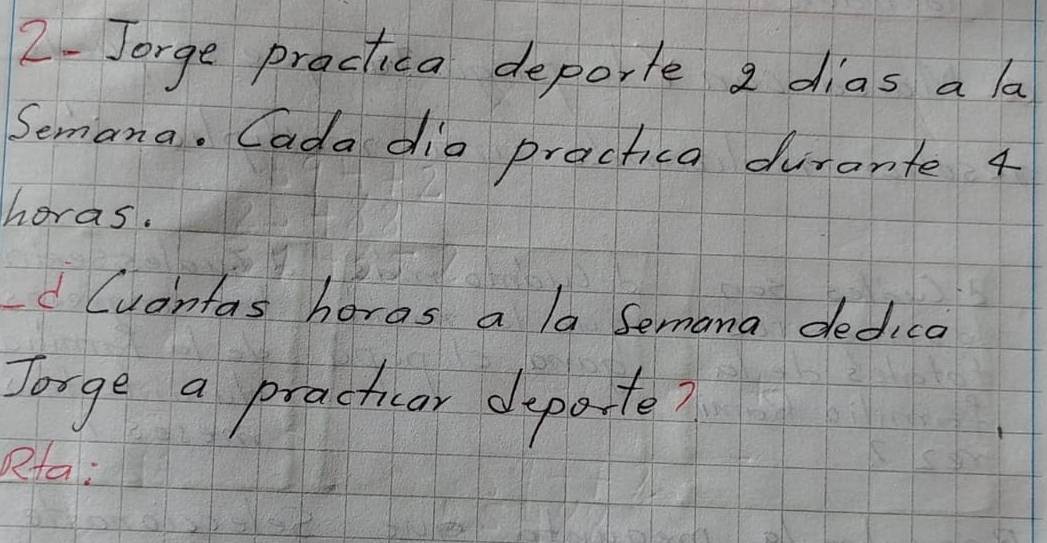 2- Jorge practica deporte 2 dias a la
Semana. Cada dia practica durante 4
horas.
-¿ Cuántas horas a la Semana dedica
Jorge a practicar deporte?
Rta: